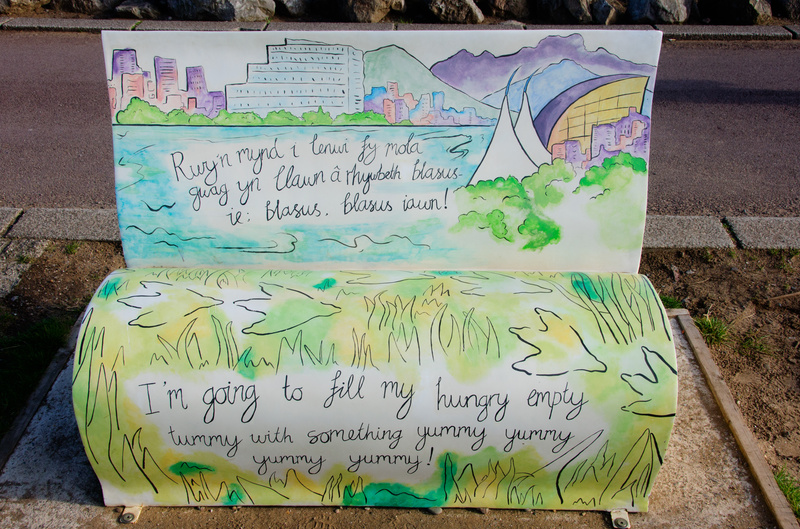 Rwy'n mynd i lenwi fy mola
gwag yn llawn â rhywbeth blasus-
ie: blasus, blasus iawn!
I'm going to fill my hungry empty
tummy with something yummy yummy
yummy yummy!